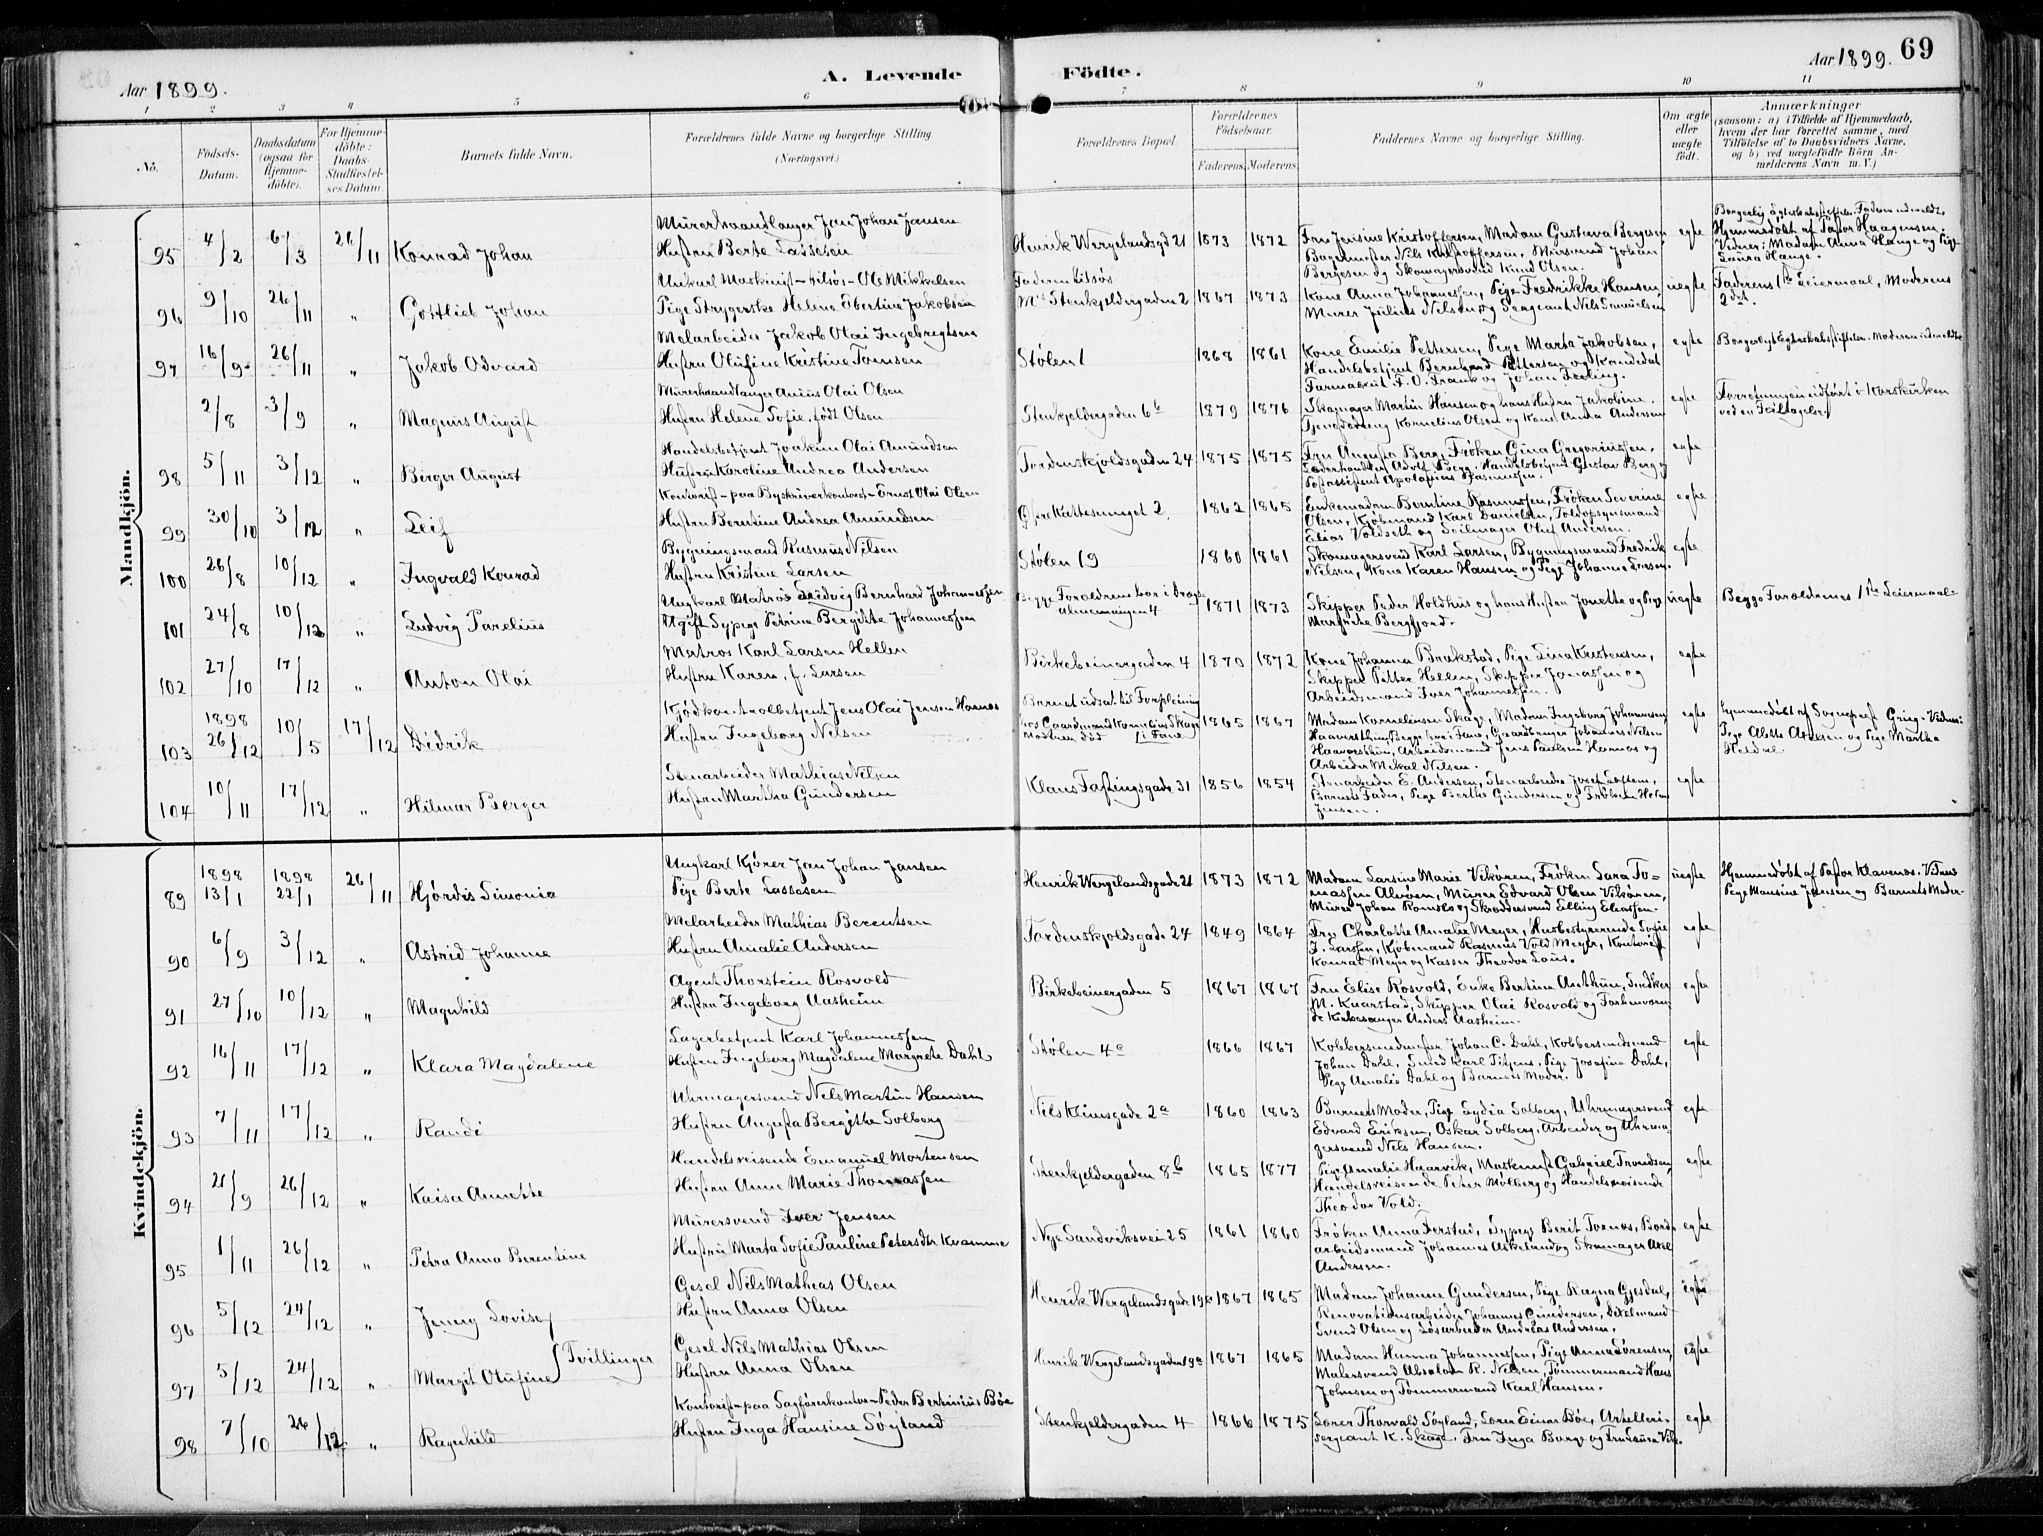 Aar 1899.
A. Levende
Födte.
Aar 1899.
69
1 2 3 4 5 6 7 8 9 10 11
No.
Födsels-
Datum.
Daabsdatum
(ogsaa for
Hjemme-
döbte).
For Hjemme-
döbte:
Daabs-
Stadfæstel-
ses Datum.
Barnets fulde Navn.
Forældrenes fulde Navne og borgerlige Stilling.
(Næringsvei.)
Forældrenes Bopæl.
Forældrenes
Födselsaar.
Faderens. Moderens.
Faddernes Navne og borgerlige Stilling.
Om ægte
eller
uægte
födt.
Anmærkninger
(saasom: a) i Tilfælde af Hjemmedaab,
hvem der har forrettet samme, med
Tilföielse af to Daabsvidners Navne,
og b) ved uægtefödte Börn An-
melderens Navn m. V.)
Mandkjön.
95 4/2 6/3 26/11 Konrad Johan
Murerhaandlanger Jan Johan Jansen
Hustru Berte Lassesen
Henrik Wergelandsgd 21 1873 1872
Fru Jensine Kristoffersen, Madam Gustava Bergesen,
Bagermester Nils Kristoffersen, Mursvend Johan
Bergesen og Skomagersvend Knud Olsen.
egte
Hjemmedöbt af Pastor Haagensen.
Vidner: Madam Anna Hauge og Pige
Laura Hauge.
96 9/10 26/11 " Gottlieb Johan
Unkarl Maskinist - tilsös - Ole Mikkelsen
Pige Strygerske Helene Ebertine Jakobsen
Faderen tilsös
M: Stenkjeldergaden 2 1867 1873
Kone Anna Johannessen, Pige Fredrikke Hansen,
Murer Julius Nilsen og Sergeant Nils Samuelsen
uegte
Faderens 1ste Leiermaal, Moderens
2det.
97 16/9 26/11 " Jakob Odvard
Melarbeider Jakob Olai Ingebregtsen
Hustru Olufine Kristine Tomsen
Stölen 1 1868 1861
Kone Emilie Pettersen, Pige Marta Jakobsen,
Handelsbetjent Bernhard Pettersen og Kandidat
egte
Borgerligt Egteskabsstiftelse. Moderen udmeldt
2/8 3/9 " Magnus August
Murerhaandlanger Anius Olai Olsen
Hustru Helene Sofie, födt Olsen
Stenkjeldergaden 6b 1879 1876
Skomager Martin Hansen og hans Hustru Jakobine,
Kornelius Olsen og Kone Anna Andersen
egte
Forretningen udfört i Korskirken
98 5/11 3/12 " Birger August
Handelsbetjent Joakim Olai Amundsen
Hustru Karoline Andrea Andersen
Tordenskjoldsgaden 24 1875 1875
Fru Augusta Berg, Fröken Gina Gregoriussen,
Læderhandler Adolf Berg, Handelsbetjent Gustav Berg og
egte
99 30/10 3/12 " Leif
Kontorist - paa Byskriverkontoret - Ernst Olai Olsen
Hustru Berntine Andrea Amundsen
Östre Kattesmuget 2 1862 1865
Enkemadam Berntine Rasmussen, Fröken Severine
Olsen, Kjöbmand Karl Danielsen, Toldopsynsmand
Elias Voldseth og Seilmager Oluf Andersen.
egte
100 26/8 10/12 " Ingvald Konrad
Bygningsmand Rasmus Nilsen
Hustru Kristine Larsen
Stölen 19 1860 1861
Skomagersvend Karl Larsen, Bygningsmand Fredrik
Nilsen, Kone Karen Hansen og Pige Johanne Larsen.
egte
101 24/8 10/12 " Ludvig Parelius
Ungkarl Matros Ludvig Bernhard Johannessen
Ugift Sypige Petrine Bergitte Johannessen
Begge Forældrene bor i
Almenningen 4 1871 1873
Skipper Peder Holdhus og hans Hustru Jonette og Pige
Margrethe Bergfjord.
uegte
Begge Forældrenes 1ste Leiermaal
102 27/10 17/12 " Anton Olai
Matros Karl Larsen Hellen
Hustru Karen, f. Larsen
Birkebeinergaden 4 1870 1872
Kone Johanna Brakstad, Pige Lina Kristensen,
Skipper Petter Hellen, Skipper Jonassen og
Arbeidsmand Iver Johannessen.
egte
103 1898 26/12 10/5 17/12 Didrik
Kjödkontrolbetjent Jens Olai Jensen Hamos
Hustru Ingeborg Nilsen
Barnet udsat til Forpleining
hos Gaardmand Kornelius Skage
Modren död i Fane 1865 1867
Madam Kornelinsen Skage, Madam Ingeborg Johannesen
Arbeider Mikal Nilsen.
egte
Hjemmedöbt af Sogneprest Grieg. Vidner:
Heldal.
104 10/11 17/12 " Hilmar Berger
Stenarbeider Mathias Nilsen
Hustru Martha Gundersen
Klaus Fastingsgade 31 1856 1854
Stenarbeider E. Andersen, Stenarbeider
Barnets Fader, Pige Berthe Gundersen og Fröken Helene
Jensen.
egte
Kvindekjön.
89 1898 13/1 1898 22/1 26/11 Hjördis Simonia
Ungkarl Kjörer Jan Johan Jansen
Pige Berte Lassesen
Henrik Wergelandsgade 21 1873 1872
Madam Larsine Marie Vikören, Fröken Sara To=
massen Alvöen, Murer Edvard Olsen Vikören,
Murer Johan Romslo og Skræddersvend Elling Eliassen.
uegte
Hjemmedöbt af Pastor Klavenæs. Vidner
Pige Mansine Jansen og Barnets Moder.
90 6/9 3/12 " Astrid Johanne
Melarbeider Mathias Berentsen
Hustru Amalie Andersen
Tordenskjoldsgade 24 1849 1864
Fru Charlotte Amalie Meyer, Husbestyrerinde Sofie
J. Larsen, Kjöbmand Rasmus Vold Meyer, Kontorist
Konrad Meyer og Kasser Theodor Lous.
egte
91 27/10 10/12 " Magnhild
Agent Thorstein Rosvold
Hustru Ingeborg Aasheim
Birkebeinergaden 5 1867 1867
Fru Elise Rosvold, Enke Bertine Austhun, Snedker
M. Knarstad, Skipper Olai Rosvold og Forhenværen=
de Kirkesanger Anders Aasheim.
egte
92 16/11 17/12 " Klara Magdalene
Lagerbetjent Karl Johannessen
Hustru Ingeborg Magdalene Margrete Dahl
Stölen 4a 1866 1867
Kobbersmedmester Johan C. Dahl, Kobbersmedsvend
Johan Dahl, Smed Karl Titjens, Pige Josefine Dahl,
Pige Amalie Dahl og Barnets Moder.
egte
93 7/11 17/12 " Randi
Uhrmagersvend Nels Martin Hansen
Hustru Augusta Bergithe Solberg
Nils Klimsgade 2a 1860 1863
Barnets Moder, Pige Lydia Solberg, Uhrmagersvend
Edvard Eriksen, Oskar Solberg, Arbeider og Uhrma=
gersvend Nils Hansen.
egte
94 21/9 26/12 " Kaisa Annette
Handelsreisende Emanuel Mortensen
Hustru Anne Marie Thomassen
Stenkjeldergaden 8b 1865 1877
Pige Amalie Haarvik, Maskinist Gabriel Trondsen,
Handelsreisende Peter Molberg og Handelsreisende
Theodor Vold.
egte
95 1/11 26/12 " Petra Anna Berentine
Murersvend Iver Jensen
Hustru Marta Sofie Pauline Petersdtr Kvamme
Nye Sandviksvei 25 1861 1860
Fröken Anna Ferstad, Sypige Berit Tornæs, Bord=
arbeidsmand Johannes Askeland og Skomager Axel
Andersen.
egte
96 5/12 24/12 " Jenny Lovise
Gesel Nils Mathias Olsen
Hustru Anna Olsen
Henrik Wergelandsgade 19a 1867 1865
Madam Johanne Gundersen, Pige Ragna Gjesdal,
Renovationsarbeider Johannes Gundersen, Dixelmand
Svend Olsen og Lösarbeider Andreas Andersen.
egte
Tvillinger
97 5/12 24/12 " Margit Olufine
Gesel Nils Mathias Olsen
Hustru Anna Olsen
Henrik Wergelandsgaden 19a 1867 1865
Madam Hanna Johannessen, Pige Anna Sörensen,
Malersvend Absalon R. Nilsen, Tömmermand Hans
Johnsen og Tömmermand Karl Hansen.
egte
98 7/10 26/12 " Ragnhild
Kontorist - paa Sagförerkontor - Peder Bertinius Böe
Hustru Inga Hansine Söyland
Stenkjeldergaden 4 1866 1875
Lærer Thorvald Söyland, Lærer Einar Böe, Artilleri=
sergeant K. Skage, Fru Inga Borge og Fru Laura Vik.
egte